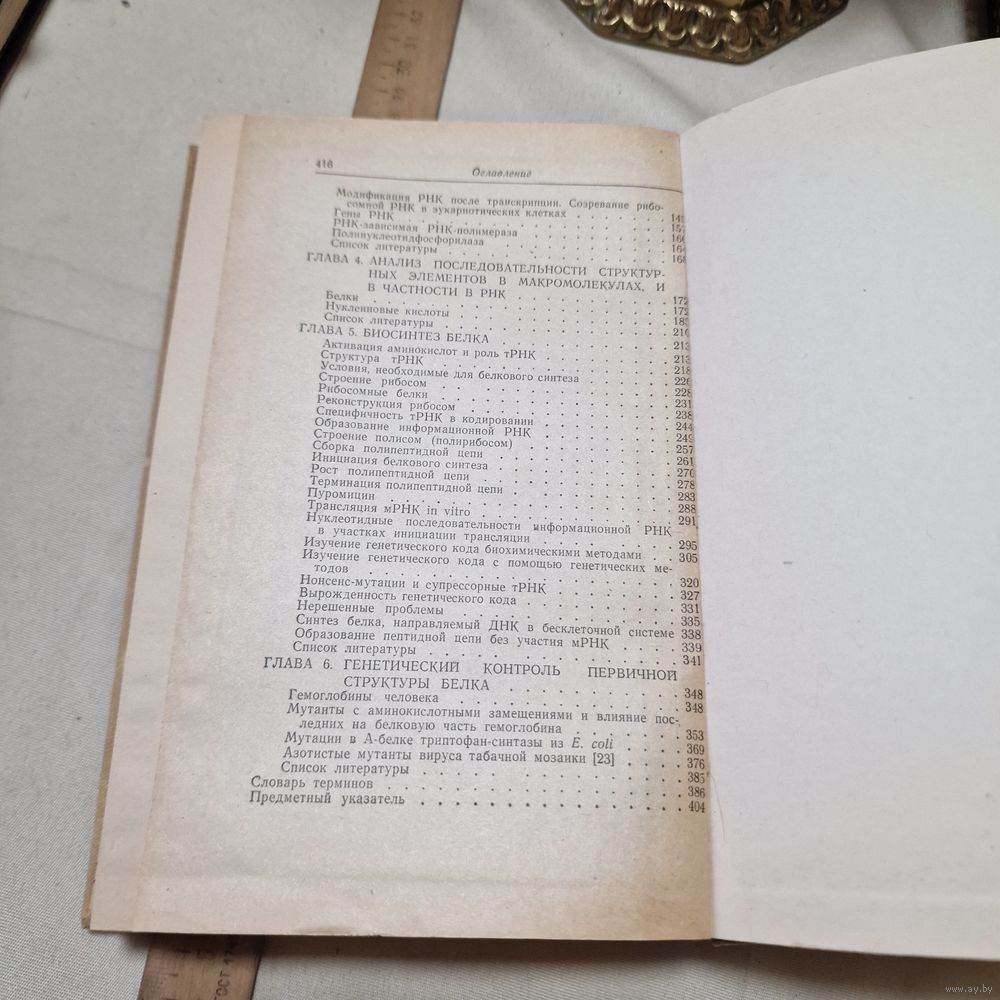 30 31 32
416
Оглавление
Модификация РНК после транскрипции. Созревание рибо-
сомной РНК в эукариотических клетках
Гены РНК
РНК-зависимая РНК-полимераза
Полинуклеотидфосфорилаза 164
Список литературы 168
ГЛАВА 4. АНАЛИЗ ПОСЛЕДОВАТЕЛЬНОСТИ СТРУКТУР-
НЫХ ЭЛЕМЕНТОВ В МАКРОМОЛЕКУЛАХ, И
В ЧАСТНОСТИ В РНК 172
Белки 172
Нуклеиновые кислоты 185
Список литературы 210
ГЛАВА 5. БИОСИНТЕЗ БЕЛКА 213
Активация аминокислот и роль тРНК 213
Структура тРНК 218
Условия, необходимые для белкового синтеза 226
Строение рибосом 228
Рибосомные белки 231
Реконструкция рибосом 238
Специфичность тРНК в кодировании 244
Образование информационной РНК 249
Строение полисом (полирибосом) 257
Сборка полипептидной цепи 261
Инициация белкового синтеза 270
Рост полипептидной цепи 278
Терминация полипептидной цепи 283
Пуромицин 288
Трансляция мРНК in vitro 291
Нуклеотидные последовательности информационной РНК
в участках инициации трансляции 295
Изучение генетического кода биохимическими методами 305
Изучение генетического кода с помощью генетических ме-
тодов 320
Нонсенс-мутации и супрессорные тРНК 327
Вырожденность генетического кода 331
Нерешенные проблемы 335
Синтез белка, направляемый ДНК в бесклеточной системе 338
Образование пептидной цепи без участия мРНК 339
Список литературы 341
ГЛАВА 6. ГЕНЕТИЧЕСКИЙ КОНТРОЛЬ ПЕРВИЧНОЙ
СТРУКТУРЫ БЕЛКА 348
Гемоглобины человека 348
Мутанты с аминокислотными замещениями и влияние пос-
ледних на белковую часть гемоглобина 353
Мутации в А-белке триптофан-синтазы из E. coli 369
Азотистые мутанты вируса табачной мозаики [23] 376
Список литературы 385
Словарь терминов 386
Предметный указатель 404
ГОСТ 17
www.ay.by